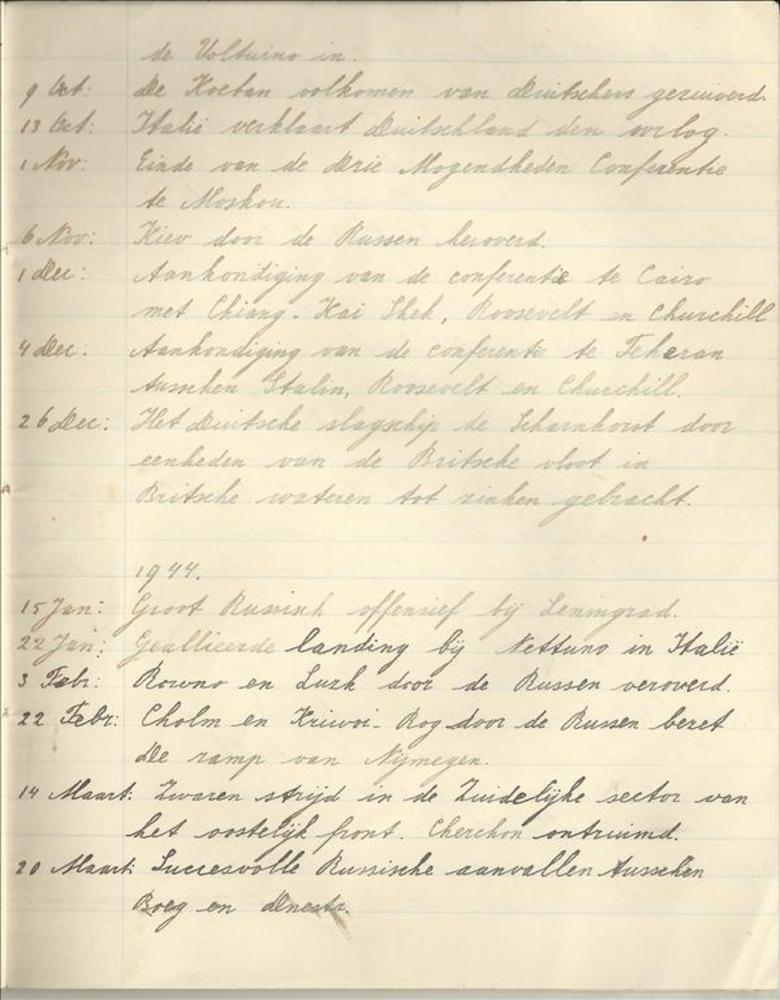 de Volturno in.
9 Oct: De Koeban volkomen van Duitschers gezuiverd.
13 Oct: Italië verklaart Duitschland den oorlog.
1 Nov: Einde van de Drie Mogendheden Conferentie
te Moskou.
6 Nov: Kiev door de Russen heroverd.
1 Dec: Aankondiging van de conferentie te Cairo
met Chiang-Kai Shek, Roosevelt en Churchill
4 Dec: Aankondiging van de conferentie te Teheran
tusschen Stalin, Roosevelt en Churchill.
26 Dec: Het Duitsche slagschip de Scharnhorst door
eenheden van de Britsche vloot in
Britsche wateren tot zinken gebracht.
1944.
15 Jan: Groot Russisch offensief bij Leningrad.
22 Jan: Geallieerde landing bij Nettuno in Italië
3 Febr: Rowno en Luzk door de Russen veroverd.
22 Febr: Cholm en Kriwoi-Rog door de Russen bezet
De ramp van Nijmegen.
14 Maart: Zwaren strijd in de Zuidelijke sector van
het oostelijk front. Cherchon ontruimd.
20 Maart: Succesvolle Russische aanvallen tusschen
Boeg en Dnestr.